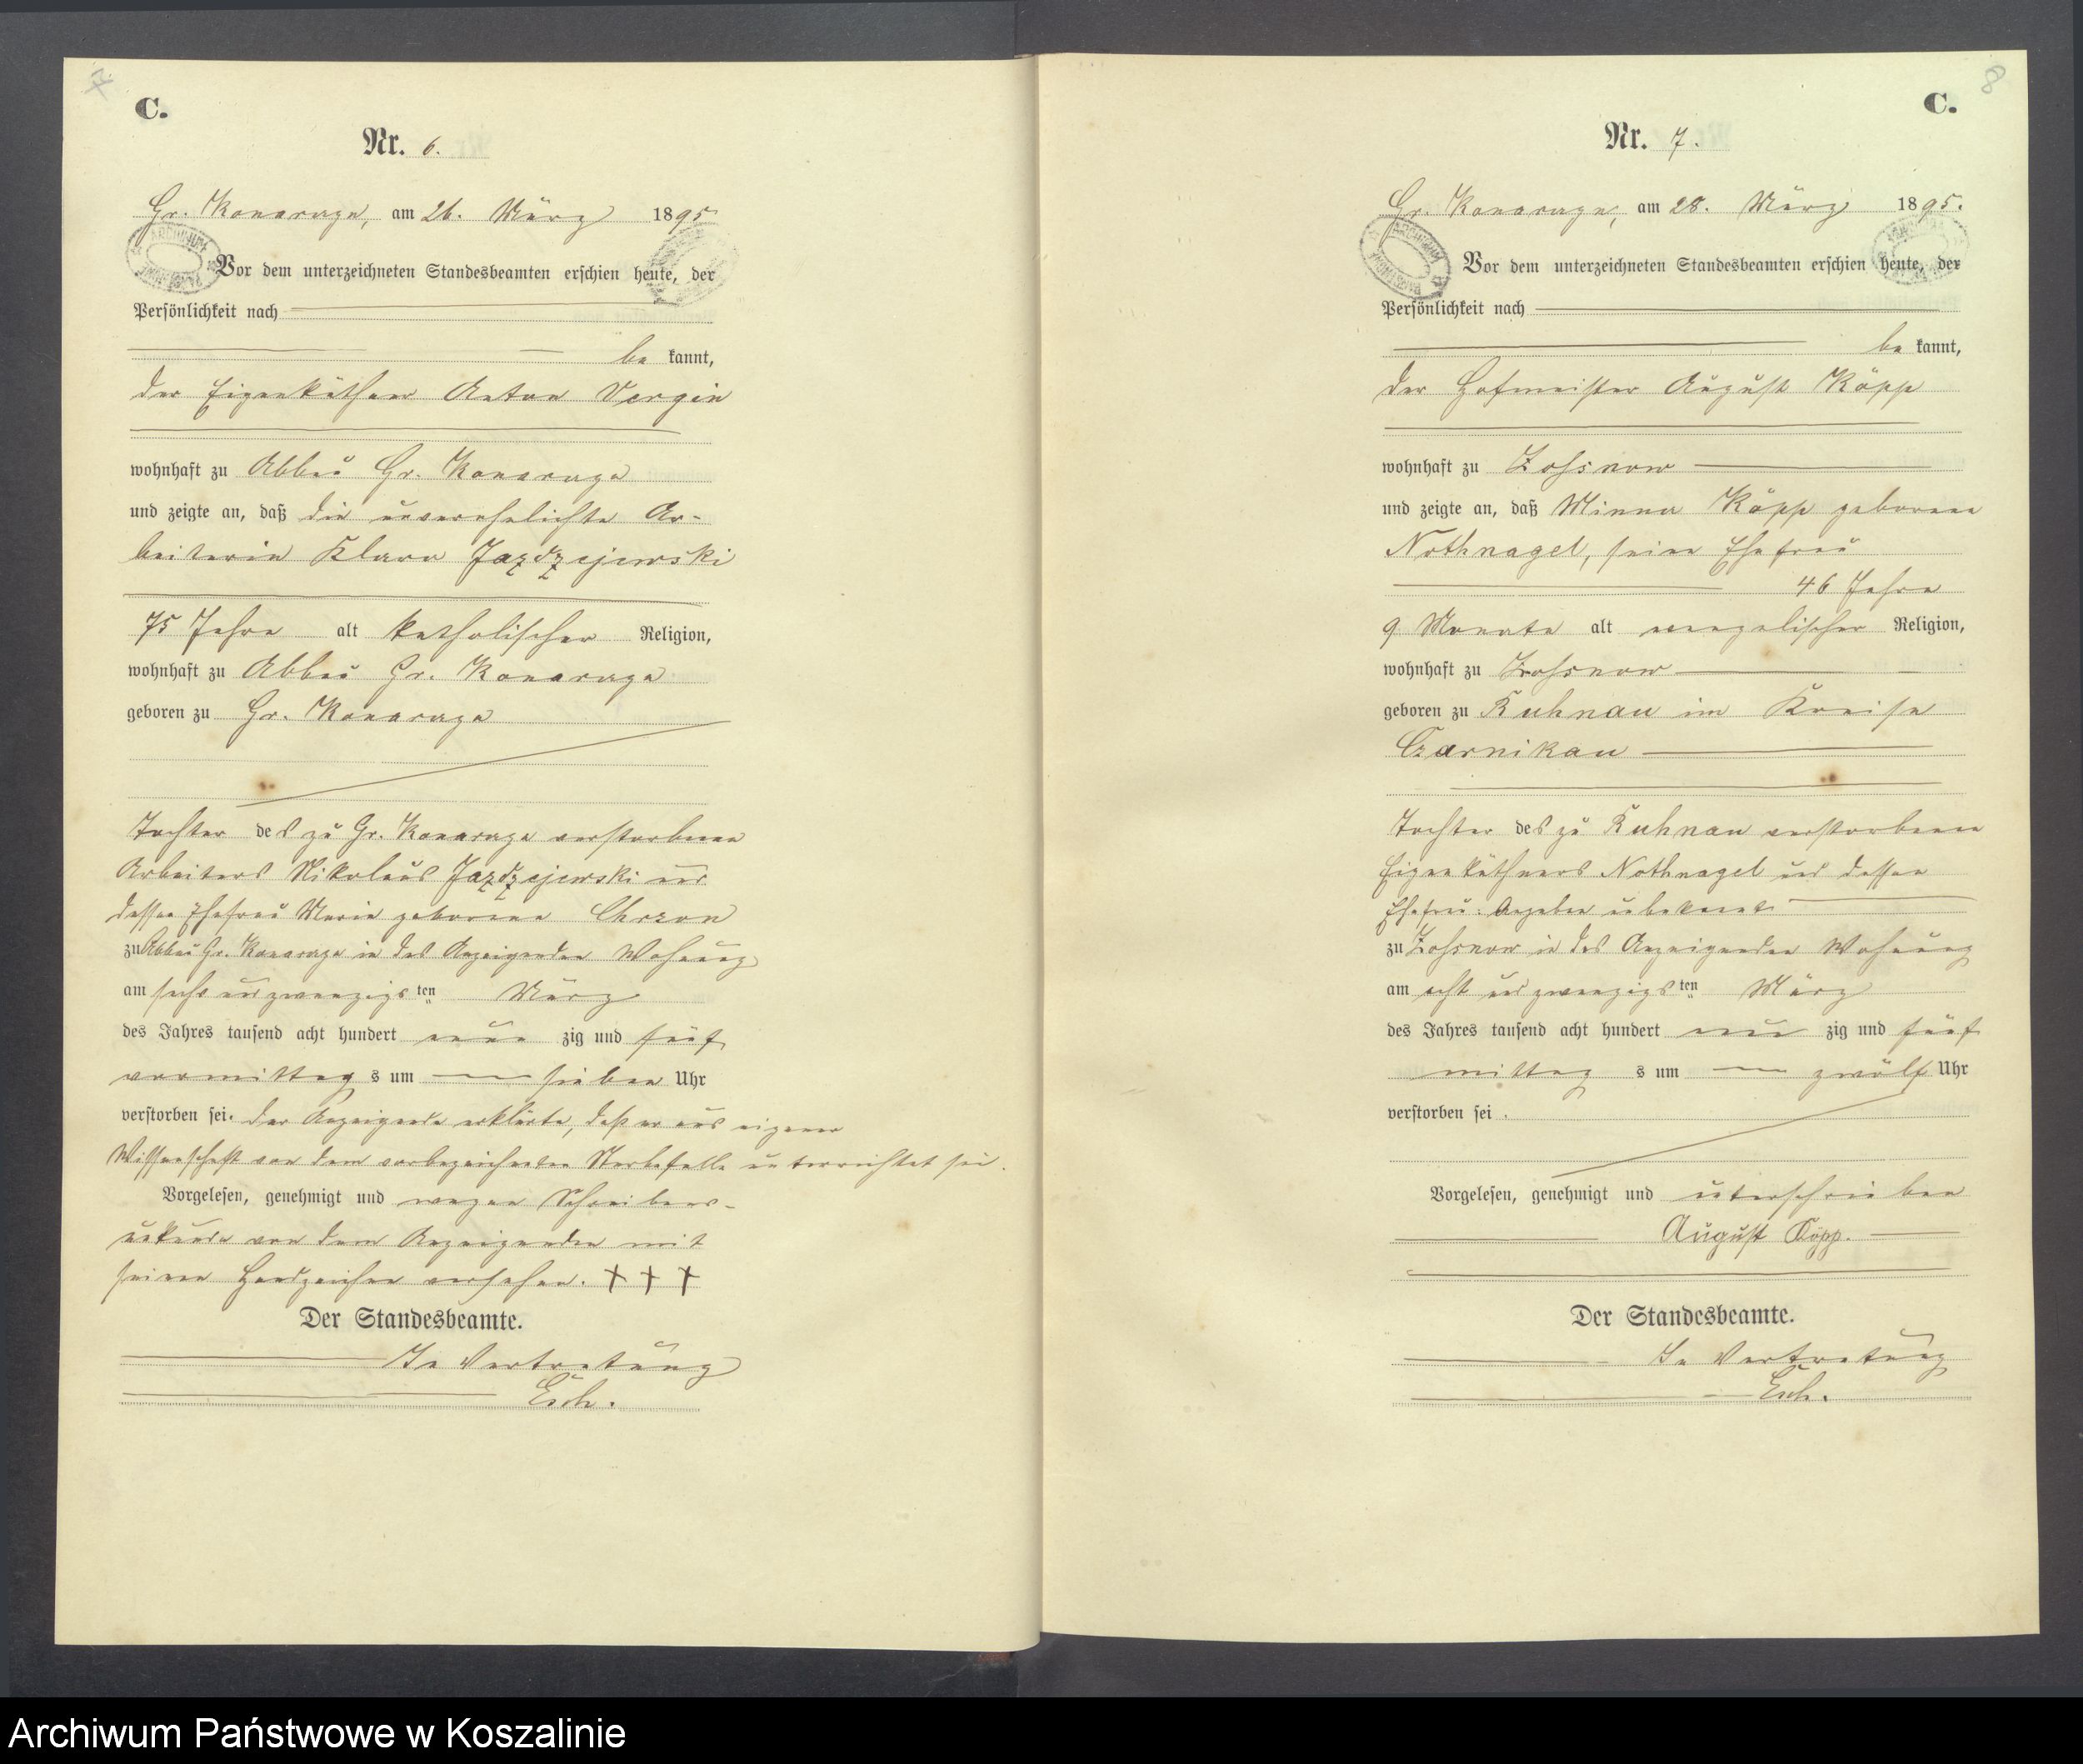 7.
C.
Nr. 6.
Gr. Konarzyn, am 26. März 1895
Vor dem unterzeichneten Standesbeamten erschien heute, der
Persönlichkeit nach
be kannt,
der Eigenkäthner Anton Vergin
wohnhaft zu Abbau Gr. Konarzyn
und zeigte an, daß die unverehelichte Ar-
beiterin Klara Jazdzejewski
75 Jahre alt katholischer Religion,
wohnhaft zu Abbau Gr. Konarzyn
geboren zu Gr. Konarzyn
Tochter des zu Gr. Konarzyn verstorbenen
Arbeiters Nikolaus Jazdzejewski und
dessen Ehefrau Marie geborene Chrzon
zu Abbau Gr. Konarzyn in des Anzeigenden Wohnung
am sechs und zwanzigsten März
des Jahres tausend acht hundert neun zig und fünf
vormittag s um sieben Uhr
verstorben sei. Der Anzeigende erklärte, daß er aus eigener
Wissenschaft von dem vorbezeichneten Sterbefalle unterrichtet sei.
Vorgelesen, genehmigt und wegen Schreibens-
unkunde von dem Anzeigenden mit
seinen Handzeichen versehen. + + +
Der Standesbeamte.
In Vertretung
Esch.
8
C.
Nr. 7.
Gr. Konarzyn, am 28. März 1895.
Vor dem unterzeichneten Standesbeamten erschien heute, der
Persönlichkeit nach
be kannt,
der Hofmeister August Köpp
wohnhaft zu Zossnow
und zeigte an, daß Minna Köpp geborene
Nothnagel, seine Ehefrau
46 Jahre
9 Monate alt evangelischer Religion,
wohnhaft zu Zossnow
geboren zu Kuhnau im Kreise
Czarnikau
Tochter des zu Kuhnau verstorbenen
Eigenkäthners Nothnagel und dessen
Ehefrau: Angaben unbekannt
zu Zossnow in des Anzeigenden Wohnung
am acht und zwanzigsten März
des Jahres tausend acht hundert neun zig und fünf
mittag s um zwölf Uhr
verstorben sei.
Vorgelesen, genehmigt und unterschrieben
August Köpp.
Der Standesbeamte.
In Vertretung
Esch.
Archiwum Państwowe w Koszalinie